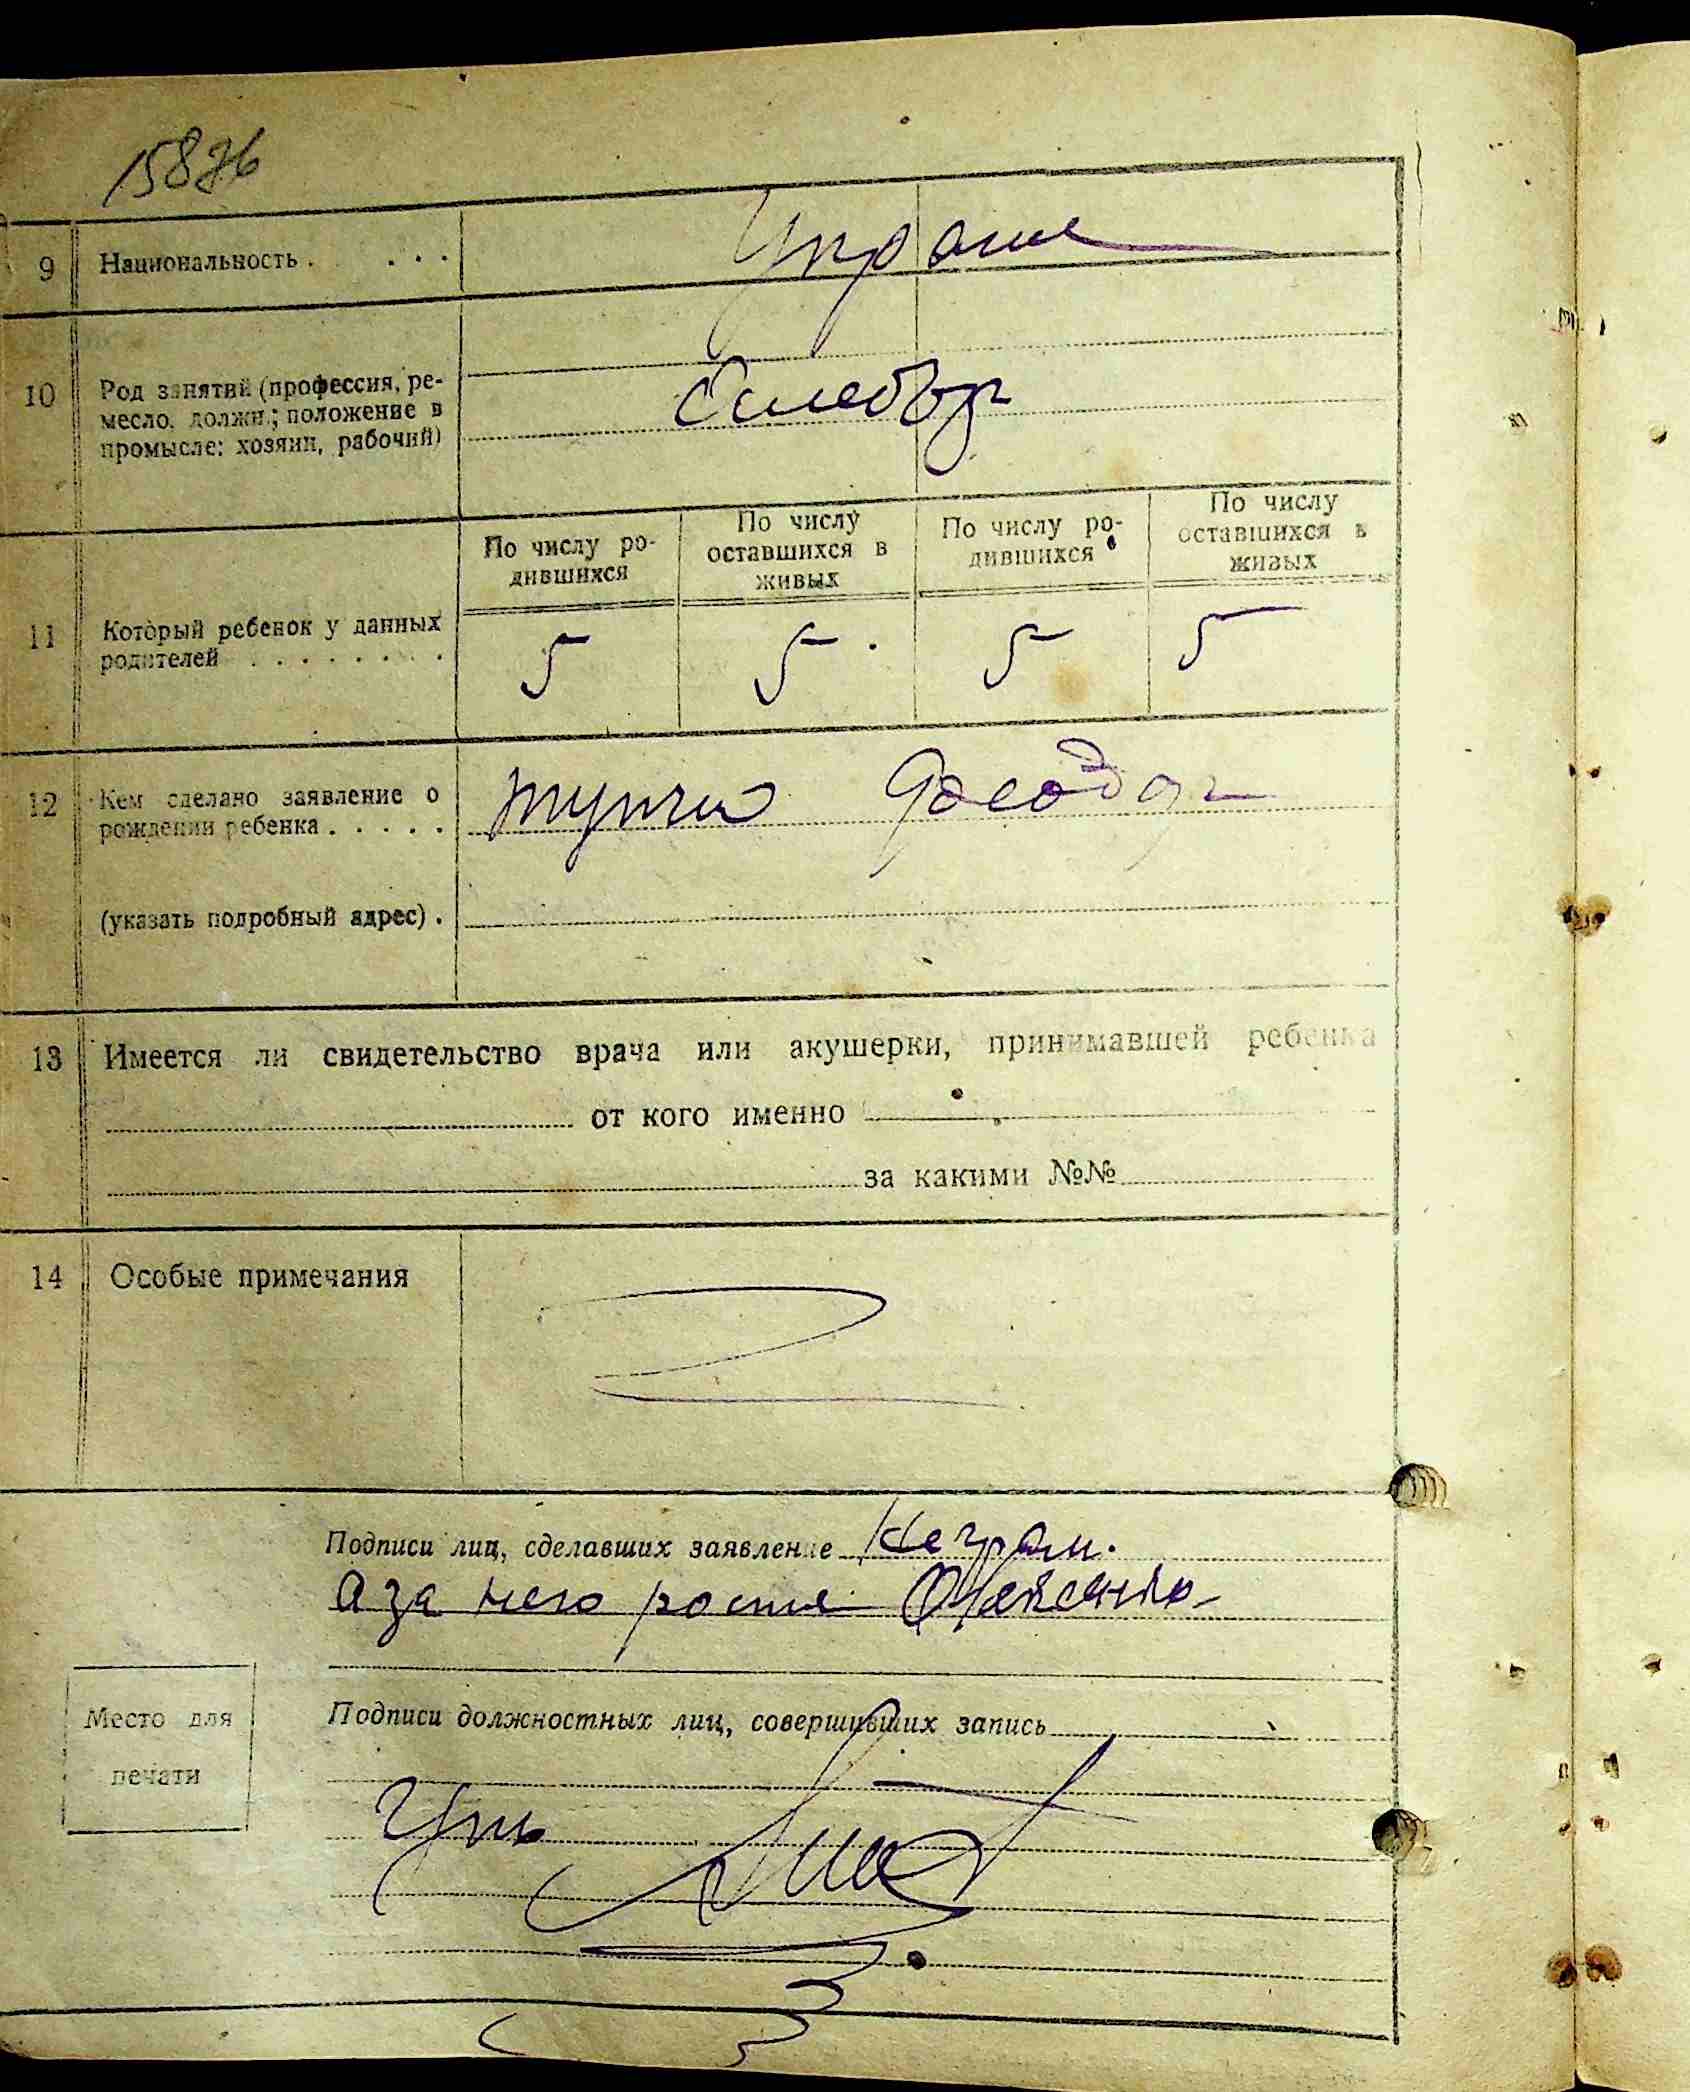 9 Национальность . . . .
10 Род занятий (профессия, ре-
месло, должн.; положение в
промысле: хозяин, рабочий)
По числу ро-
дившихся
По числу
оставшихся в
живых
По числу ро-
дившихся
По числу
оставшихся в
живых
11 Который ребенок у данных
родителей . . . . . . . .
5 5 5 5
12 Кем сделано заявление о
рождении ребенка . . . . .
(указать подробный адрес) .
13 Имеется ли свидетельство врача или акушерки, принимавшей ребенка
от кого именно
за какими №№
14 Особые примечания
Подписи лиц, сделавших заявление Неграм.
а за него
Место для
печати
Подписи должностных лиц, совершивших запись